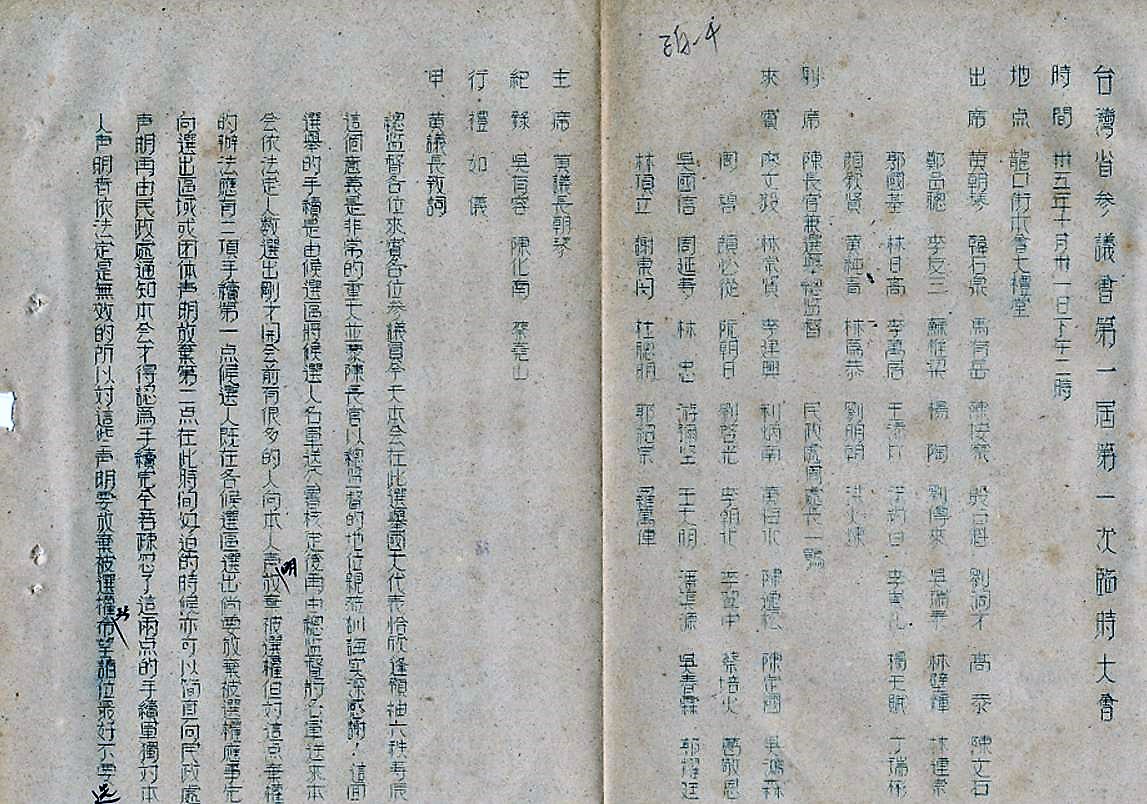 台灣省参議會第一屆第一次臨時大會
時間 卅五年十月卅一日下午二時
地点 龍口街本會大禮堂
出席 黃朝琴 韓石泉 馬有岳 陳按察 殷占魁 劉闊才 高恭 陳文石
鄭品聰 李友三 蘇惟梁 楊陶 劉傳來 吳瑞泰 林璧輝 林連宗
郭國基 林日高 李萬居 王添灯 洪約白 李崇礼 楊天賦 丁瑞彬
顏欽賢 黃純青 林為恭 劉明朝 洪火煉
列席 陳長官兼選舉總監督 民政處周處長一鶚
來賓 連文毅 林宗賢 李建興 利炳南 陳逢松 陳定國 吳鴻森
周碧 顏公從 阮朝日 劉啓光 李朝北 李翼中 蔡培火 葛敬恩
吳國信 周延寿 林忠 游彌堅 王大明 潘渠源 吳春霖 郭耀廷
林頂立 謝東閔 杜聰明 郭紹宗 羅萬俥
主席 黃議長朝琴
紀錄 吳有容 陳化南 蔡堯山
行禮如儀
甲 黃議長致詞
總監督各位來賓各位参議員今天本会在此選舉國大代表恰欣逢領袖六秩寿辰
這個意義是非常的重大並蒙陳長官以總監督的地位親蒞訓誨实深感謝！這回
選舉的手續是由候選區將候選人名單送公署核定後再由總監督將名單送來本
会依法定人數選出剛才開会前有很多的人向本人声明放棄被選權但对這点棄權
的辦法應有二項手續第一点候選人既在各候選區選出尚要放棄被選權應事先
向選出區域或团体声明放棄第二点在此時间如迫的時候亦可以简直向民政處
声明再由民政處通知本会才得認為手續完全若疎忽了這兩点的手續單獨对本
人声明者依法定是無效的所以对這些声明要放棄被選權者希望諸位最好不要选